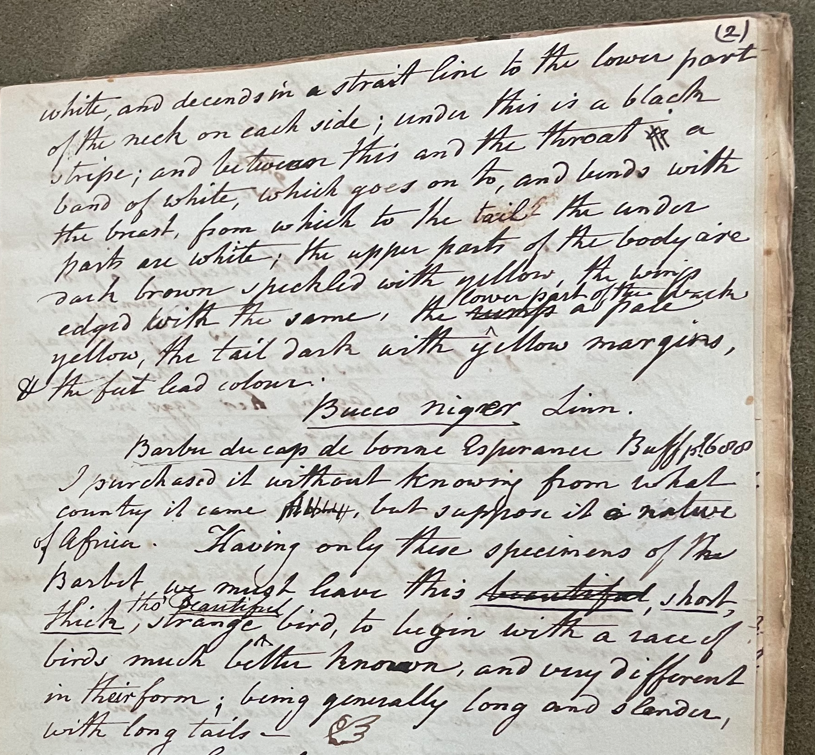 (2)
white, and decends in a strait line to the lower part
of the neck on each side; under this is a black
stripe; and between this and the throat is a
band of white, which goes on to, and bends with
the breast, from which to the tail the under
parts are white; the upper parts of the body are
dark brown speckled with yellow, the wings
edged with the same, the lower part of the back
rump a pale
yellow, the tail dark with yellow margins,
& the feet lead colour.
Bucco niger Linn.
Barbu du cap de bonne Esperance Buff pl 688
I purchased it without knowing from what
country it came, but suppose it a native
of Africa. Having only these specimens of the
Barbet, we must leave this beautiful, short,
thick, tho' beautiful
strange bird, to begin with a race of
birds much better known, and very different
in their form; being generally long and slender,
with long tails —